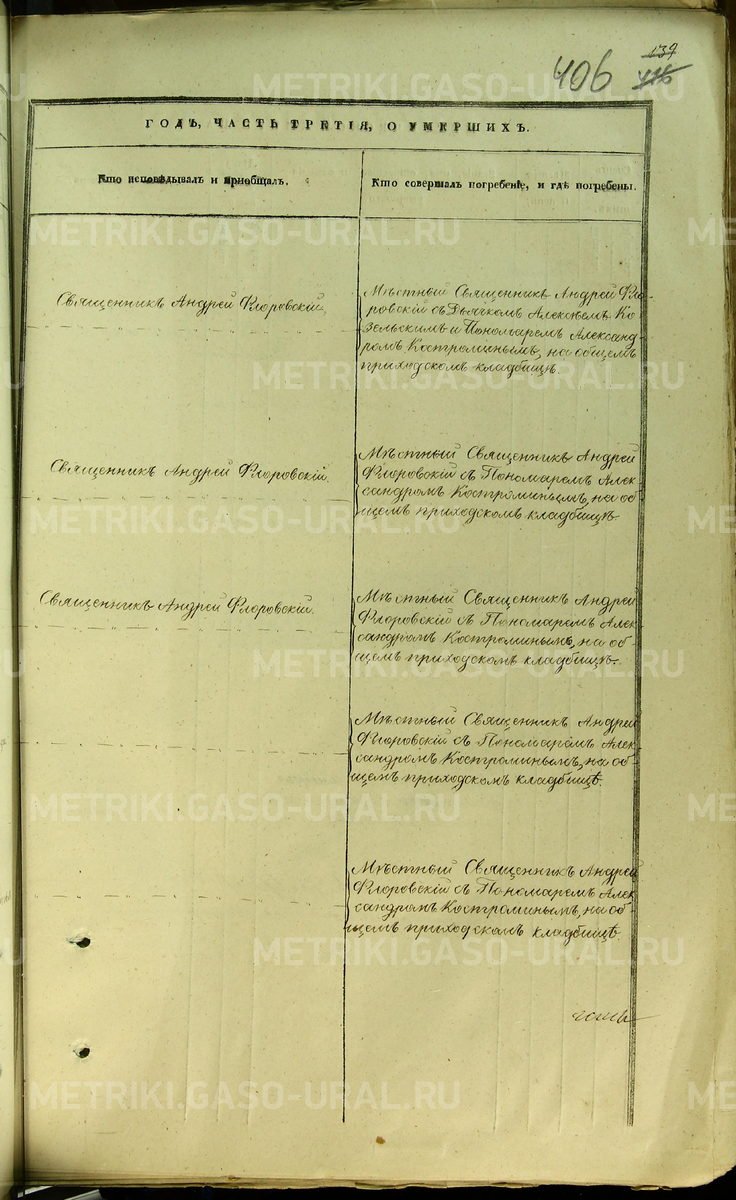 139
406
ГОДЪ, ЧАСТЬ ТРЕТІЯ, О УМЕРШИХЪ.
Кто исповѣдывалъ и пріобщалъ.
Кто совершалъ погребеніе, и гдѣ погребены.
Священникъ Андрей Флоровскій.
Мѣстный Священникъ Андрей Фло-
ровскій съ Дьячкомъ Алексѣемъ Ко
зельскимъ и Пономаремъ Александ-
ромъ Костроминымъ, на общемъ
приходскомъ кладбищѣ.
Священникъ Андрей Флоровскій.
Мѣстный Священникъ Андрей
Флоровскій съ Пономаремъ Алек-
сандромъ Костроминымъ, на об-
щемъ приходскомъ кладбищѣ.
Священникъ Андрей Флоровскій.
Мѣстный Священникъ Андрей
Флоровскій съ Пономаремъ Алек-
сандромъ Костроминымъ, на об-
щемъ приходскомъ кладбищѣ.
Мѣстный Священникъ Андрей
Флоровскій съ Пономаремъ Алек-
сандромъ Костроминымъ, на об-
щемъ приходскомъ кладбищѣ.
Мѣстный Священникъ Андрей
Флоровскій съ Пономаремъ Алек-
сандромъ Костроминымъ, на об-
щемъ приходскомъ кладбищѣ.
METRIKI.GASO-URAL.RU